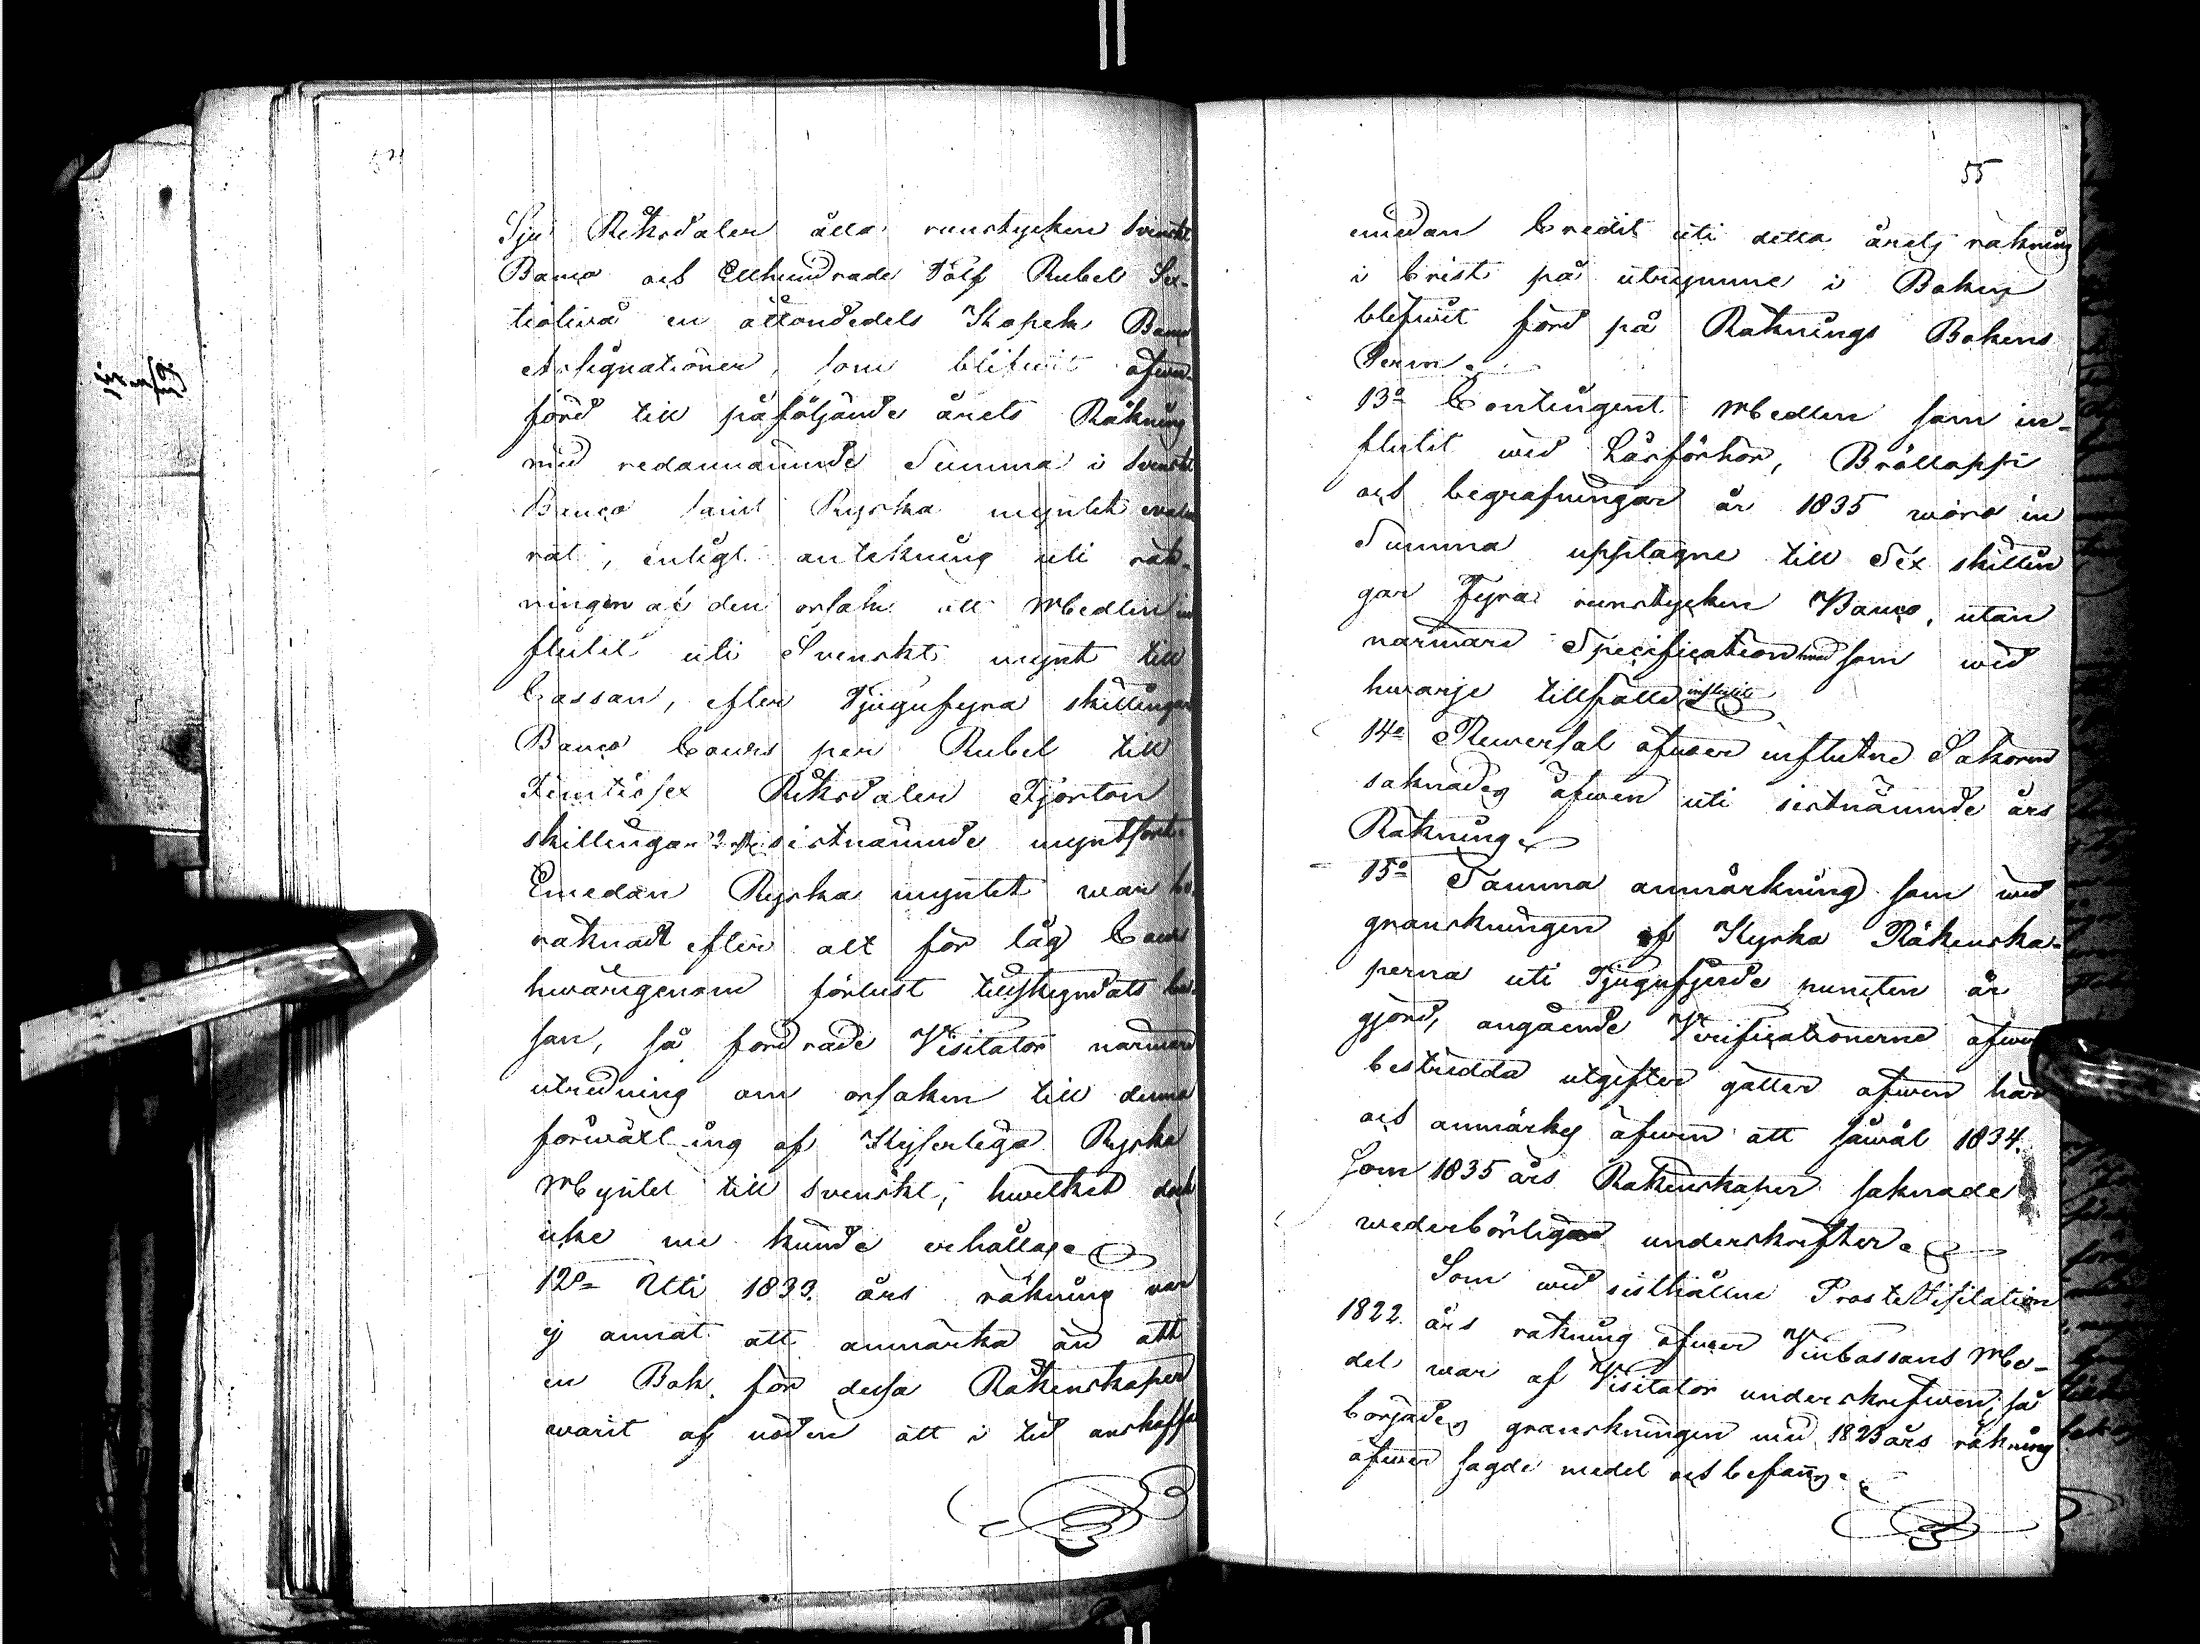 54
Sju Riksdaler åtta runstycken Svenskt
Banco och Etthundrade Tolf Rubel Sex-
tiotivå en åttondedels Kopek Banco
Assignationer, som blifwit öfwer-
förd till påföljande årets Räkning
med redannämnde Summa i Svenskt
Banco samt Ryska myntet evalve-
rat, enligt antekning uti räk-
ningen af den orsak att Medlen in
flutit uti Svenskt mynt till
Cassan, efter Tjugufyra skillingar
Banco Cours per Rubel till
Femtiosex Riksdaler Fjorton
skillingar 2 rst sistnämnde myntsort
Emedan Ryska myntet war be-
räknadt efter alt för låg Cours
hwarigenom förlust tillskyndats
san, så fordrade Visitator närmare
utredning om orsaken till denna
förwäxling af Kejserliga Ryska
Myntet till Svenskt, hwilket dock
icke nu kunde erhållas.
12o Uti 1833. års räkning var
ej annat att anmärka än att
en Bok för dessa Räkenskaper
warit af nöden att i tid anskaffa
55
emedan Credit uti detta årets räkning
i brist på utrymme i Boken
blifwit förd på Räknings Bokens
Perm.
13o Contingent Medlen som in-
flutit wid Läsförhör, Bröllopp
och begrafningar år 1835 woro in
Summa upptagne till Sex skillin
gar Fyra runstycken Banco, utan
närmare Specification hwad som wid
hwarje tillfälle influtit
14o Reversal öfwer influtne Sakören
saknades äfwen uti sistnämnde års
Räkning
15o Samma anmärkning som wid
granskningen af Kyrko Räkenska-
perna uti Tjugufjerde puncten är
gjord, angående Verificationerne öfwer
bestridda utgifter gäller äfwen här
och anmärkes äfwen att såwäl 1834.
Som 1835 års Räkenskaper saknade
wederbörliga underskrifter.
Som wid sisthållne Prosts Visitation
1822. års räkning öfwer VinCassans Me-
del war af Visitator underskrefwen, så
börjades granskningen med 1823 års räkning
öfwer sagde medel och befanns.